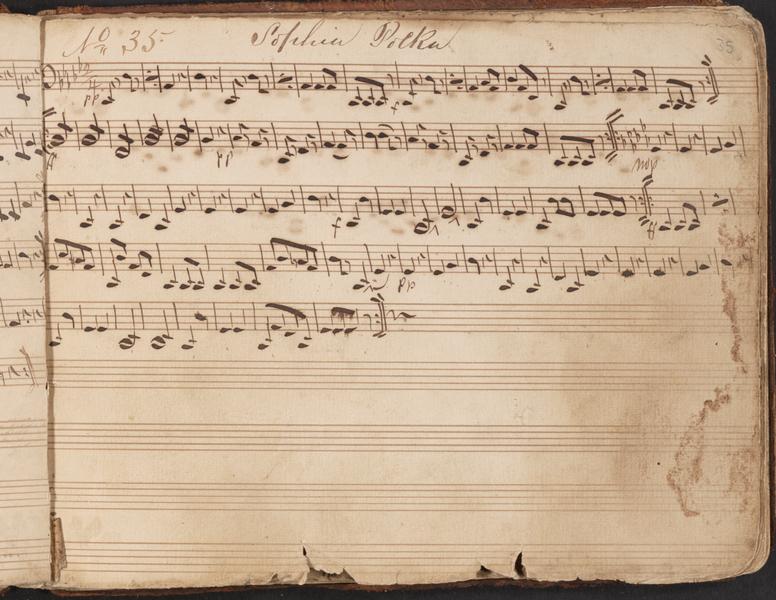 No 35 Sophia Polka 35
pp f
ff pp
f ff
pp